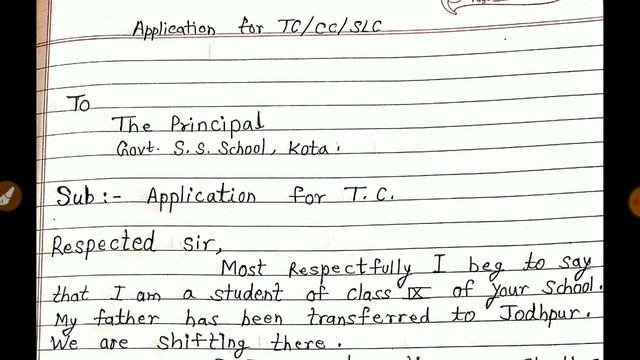 Application for TC/CC/SLC
To
The Principal
Govt. S.S. School, Kota.
Sub:- Application for T.C.
Respected Sir,
Most Respectfully I beg to say
that I am a student of class IX of your School.
My father has been transferred to Jodhpur.
We are shifting there.